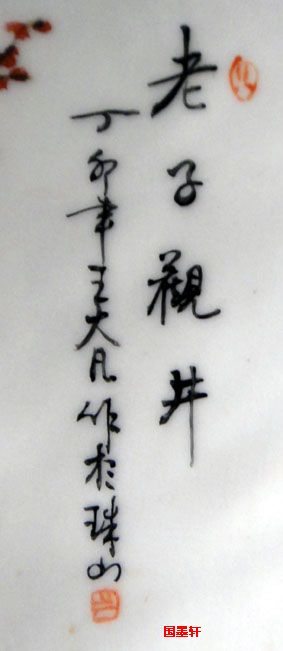 老子觀井
丁卯年王大凡作於珠山
国墨轩